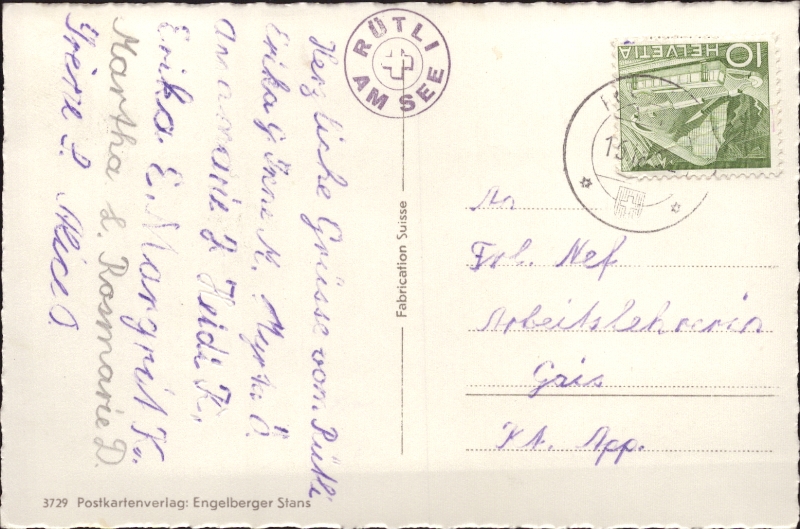 Herzliche Grüsse vom Rütli
Erika G. Irene M. Myrta Ö.
Annamarie J. Heidi K.
Erika. E. Margrit K.
Martha L. Rosmarie D.
Irène S. Alice O.
RÜTLI
AM SEE
HELVETIA
10
An
Frl. Nef
Arbeitslehrerin
Gais
Kt. App.
Fabrication Suisse
3729 Postkartenverlag: Engelberger Stans